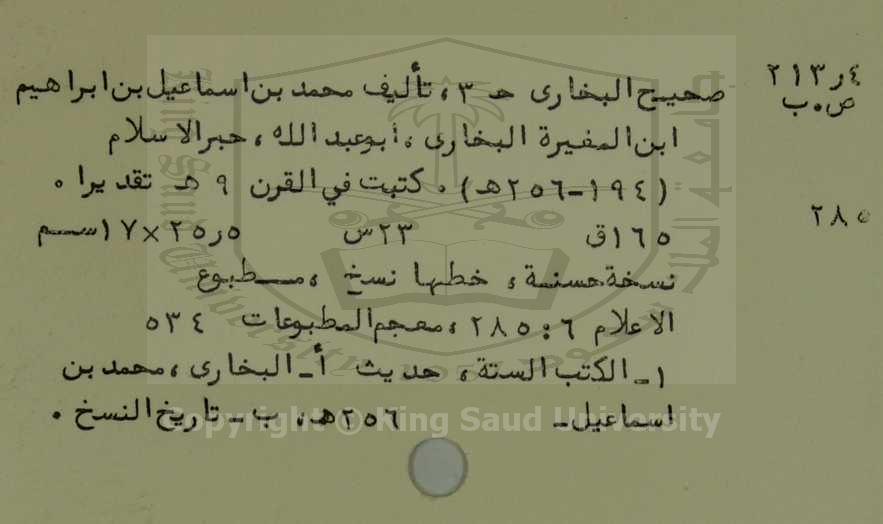 ٢١٣ر٤
صحيح البخارى حـ ٣ ، تأليف محمد بن اسماعيل بن ابراهيم
ص.ب
ابن المغيرة البخارى ، أبوعبد الله ، حبر الاسلام
(١٩٤-٢٥٦هـ) . كتبت في القرن ٩ هـ تقديرا .
٢٨٥
١٦٥ق ٢٣س ٢٥ر٥×١٧سـم
نسخة حسنة ، خطها نسخ ، مـطبوع
الاعلام ٦ : ٢٨٥ ، معجم المطبوعات ٥٣٤
١ـ الكتب الستة ، حديث أ ـ البخارى ، محمد بن
اسماعيل ـ ٢٥٦هـ ، ب ـ تاريخ النسخ .
Copyright © King Saud University